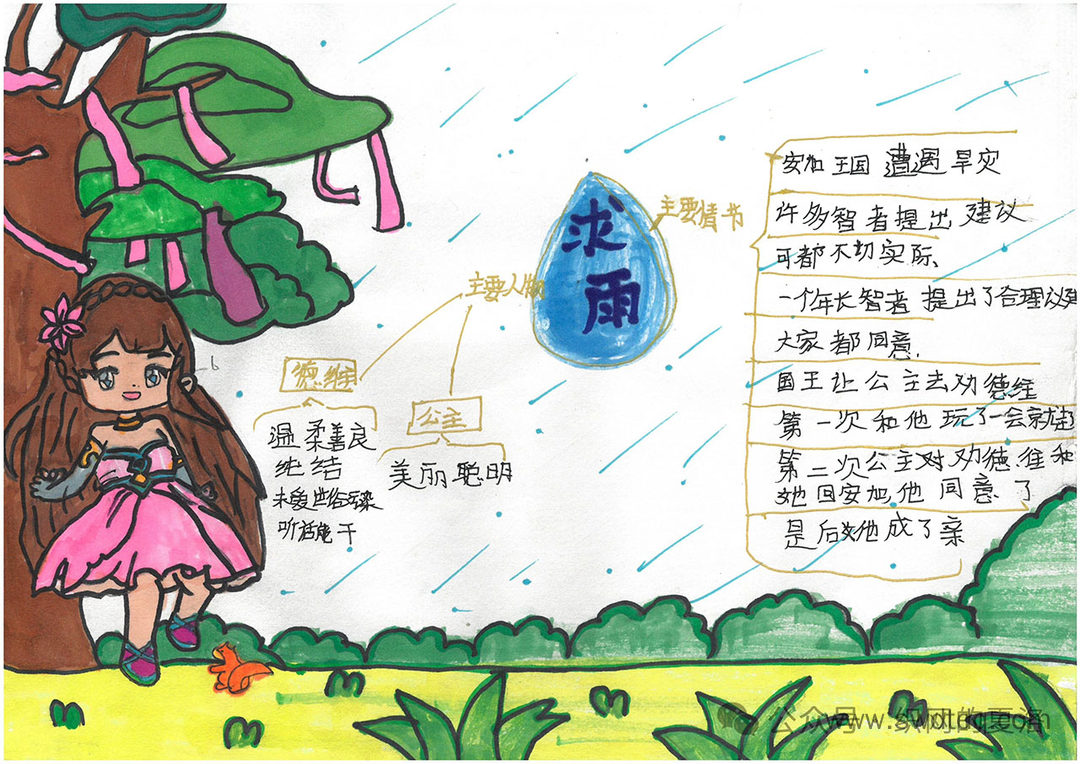 求雨
主要人物
德维
温柔善良
纯结
未爱世俗污染
听话能干
公主
美丽聪明
主要情书
安加王国遭遇旱灾
许多智者提出建议
可都不切实际、
一个年长智者提出了合理议建
大家都同意.
国王让公主去劝德维
第一次和他玩了一会就走
第二次公主对劝德维和
她回安加,他同意了
是后她他成了亲
公众号